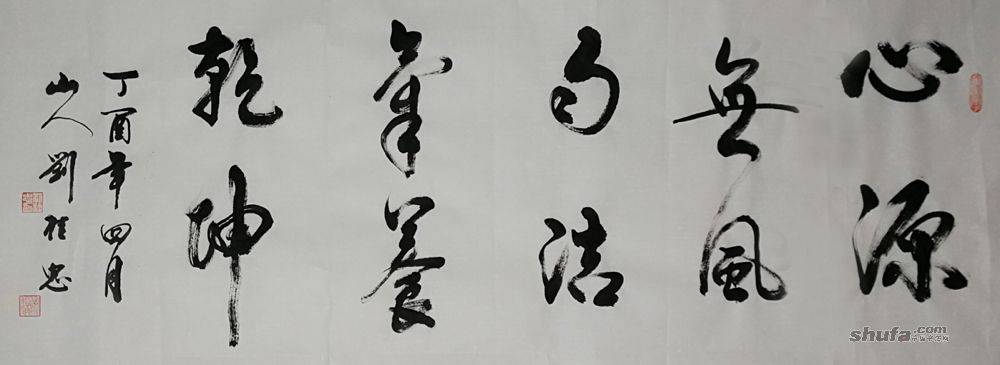 心源
無風
雨浩
氣養
乾坤
丁酉年四月
山人劉桂忠
shufa.com